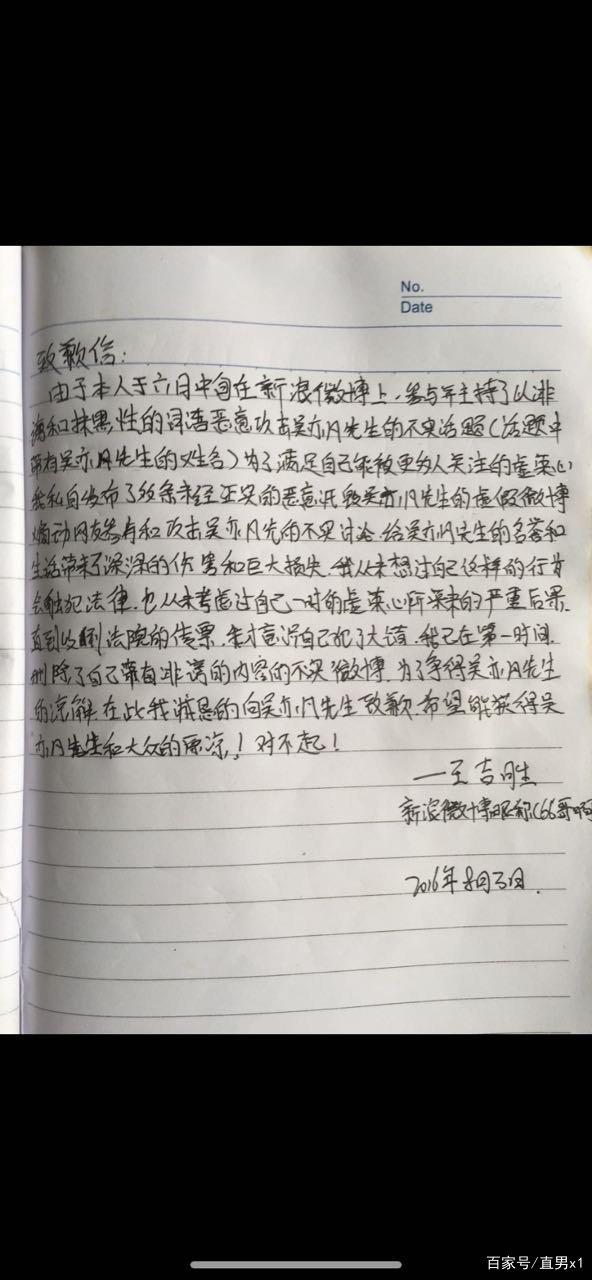 No.
Date
致歉信：
由于本人于六月中旬在新浪微博上，参与并主持了以诽
谤和抹黑性的词语恶意攻击吴亦凡先生的不实话题（话题中
带有吴亦凡先生的姓名）为了满足自己能被更多人关注的虚荣心
我私自发布了数条未经证实的恶意诋毁吴亦凡先生的虚假微博
煽动网友参与和攻击吴亦凡先的不实讨论，给吴亦凡先生的名誉和
生活带来了深深的伤害和巨大损失，我从未想过自己这样的行为
会触犯法律，也从未考虑过自己一时的虚荣心所带来的严重后果，
直到收到法院的传票，才意识自己犯了大错，我已在第一时间
删除了自己带有诽谤的内容的不实微博，为了争得吴亦凡先生
的谅解，在此我诚恳的向吴亦凡先生致歉，希望能获得吴
亦凡先生和大众的原谅！对不起！
——王吉胜
新浪微博昵称（66哥啊
2016年8月3日.
百家号/直男x1